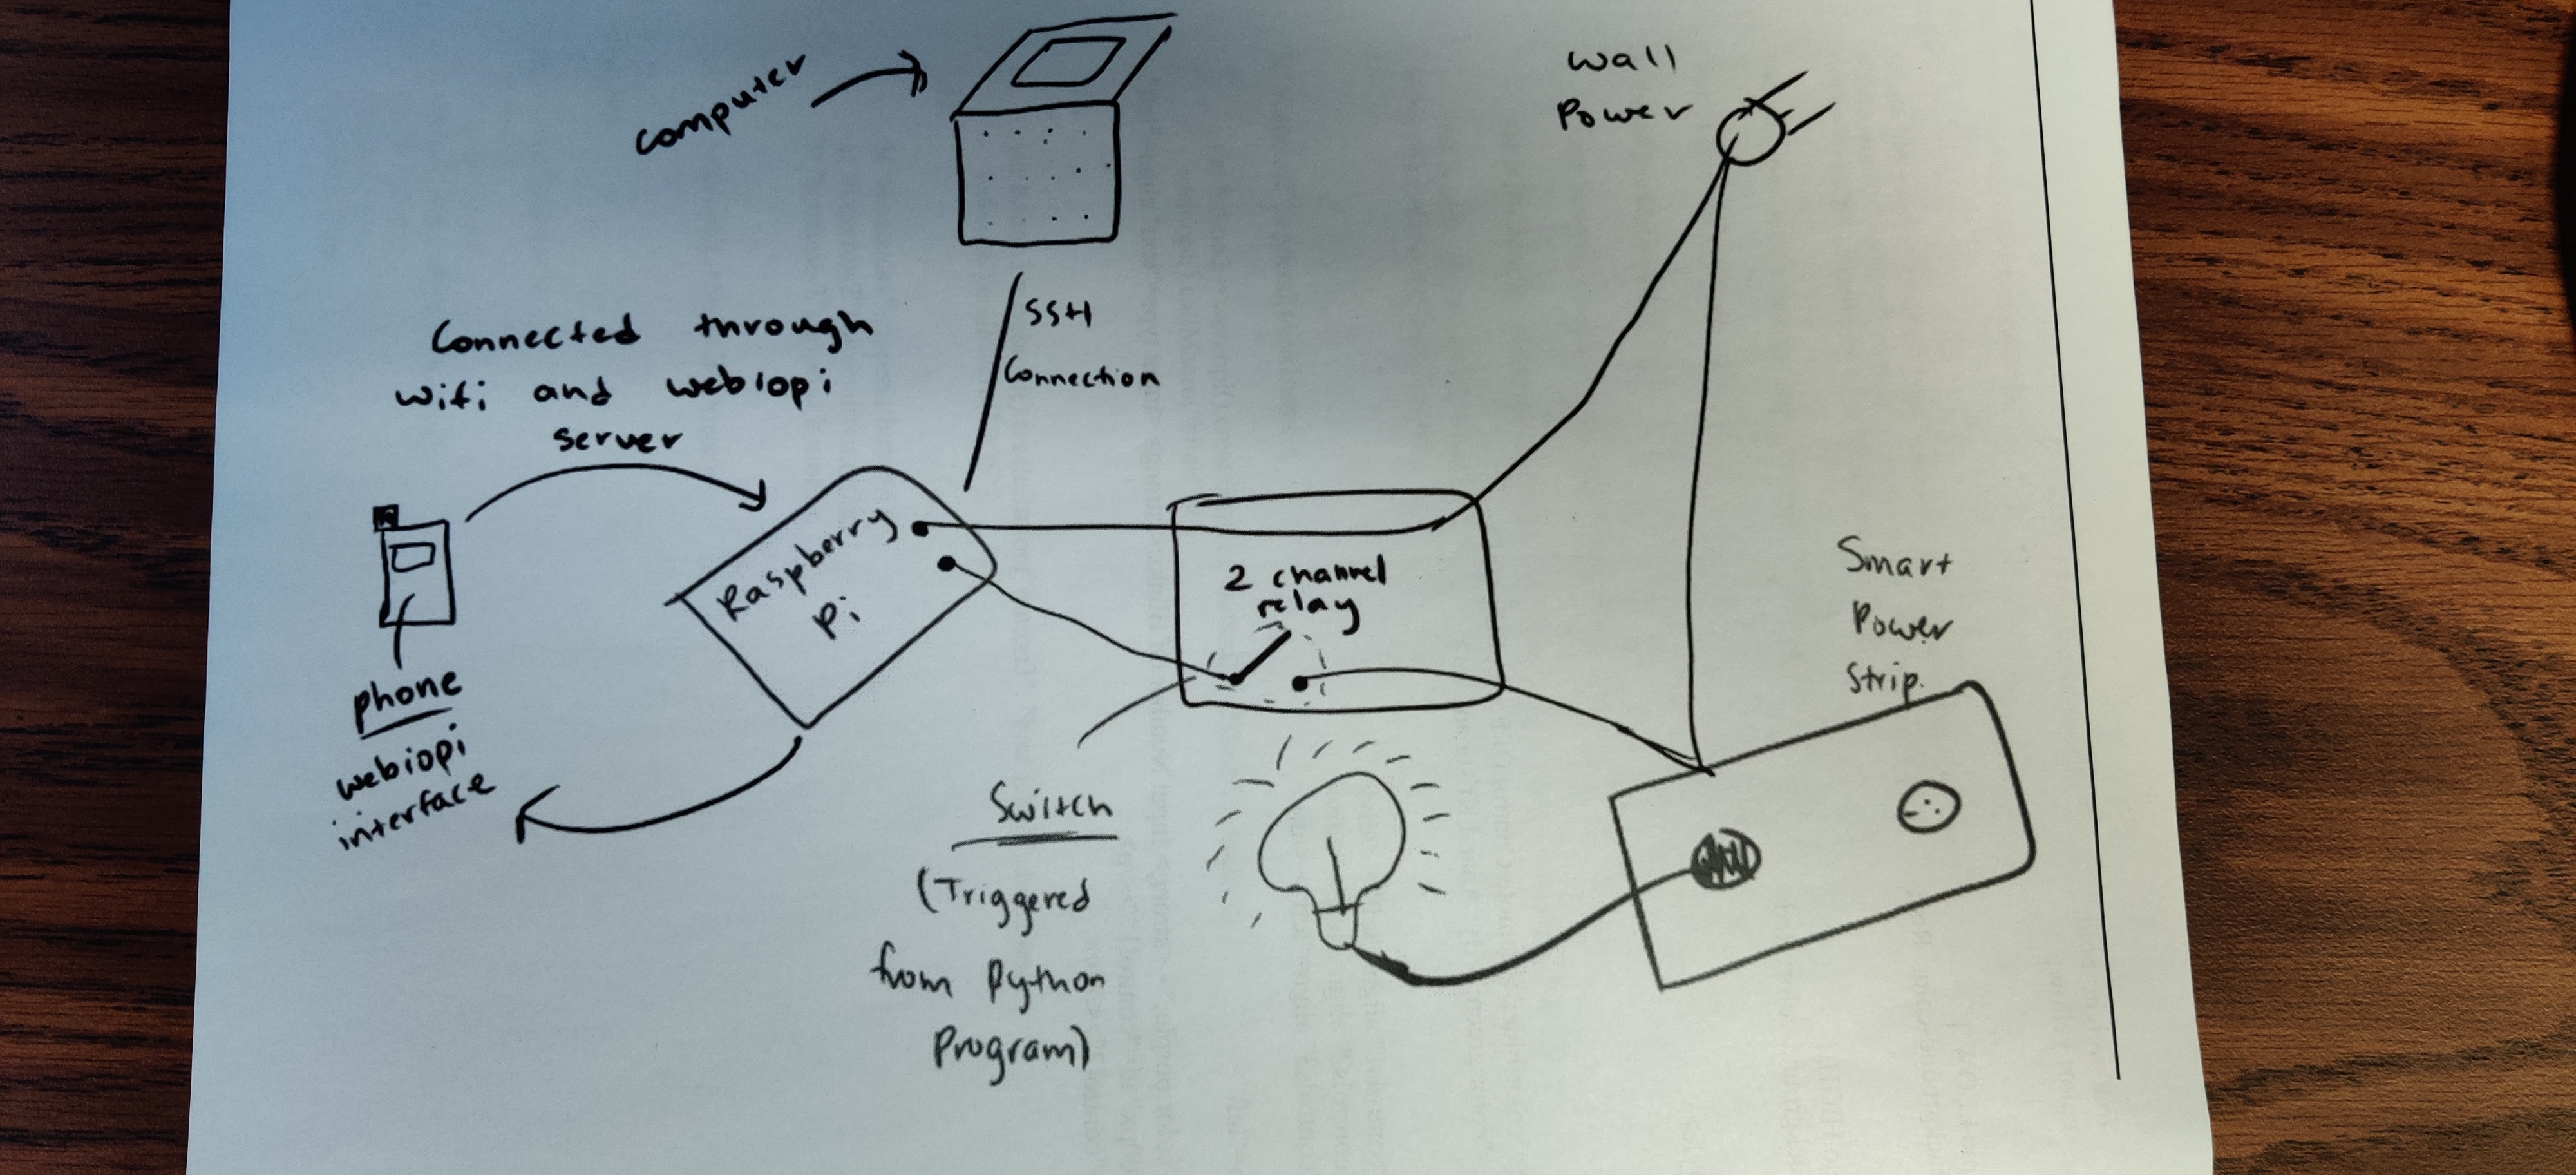 computer
wall
Power
SSH
Connection
Connected through
wifi and webiopi
server
Raspberry
Pi
2 channel
relay
Smart
Power
Strip.
phone
webiopi
interface
Switch
(Triggered
from Python
Program)